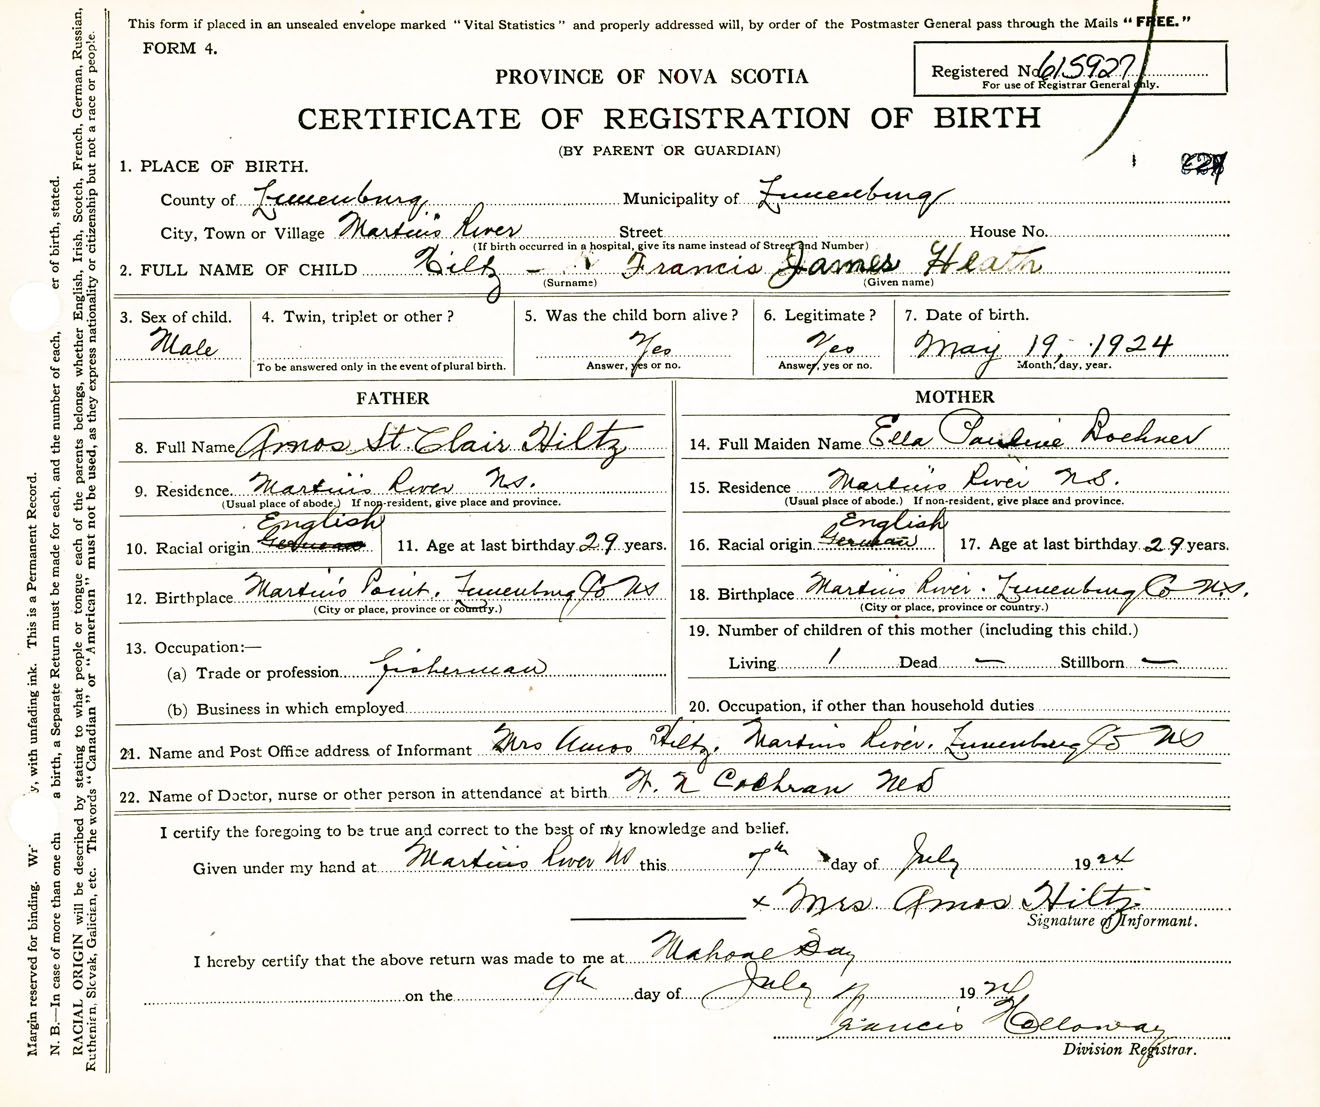 This form if placed in an unsealed envelope marked "Vital Statistics" and properly addressed will, by order of the Postmaster General pass through the Mails "FREE."
FORM 4.
Registered No. 615927
For use of Registrar General only.
PROVINCE OF NOVA SCOTIA
CERTIFICATE OF REGISTRATION OF BIRTH
(BY PARENT OR GUARDIAN)
1. PLACE OF BIRTH.
County of Lunenburg Municipality of Lunenburg
City, Town or Village Martin's River Street House No.
(If birth occurred in a hospital, give its name instead of Street and Number)
2. FULL NAME OF CHILD Hiltz - Francis James Heath
(Surname) (Given name)
3. Sex of child. 4. Twin, triplet or other? 5. Was the child born alive? 6. Legitimate? 7. Date of birth.
Male Yes Yes May 19, 1924
To be answered only in the event of plural birth. Answer, yes or no. Answer, yes or no. Month, day, year.
FATHER MOTHER
8. Full Name Amos St. Clair Hiltz 14. Full Maiden Name Ella Pauline Boehner
9. Residence. Martin's River N.S. 15. Residence Martin's River N.S.
(Usual place of abode.) If non-resident, give place and province. (Usual place of abode.) If non-resident, give place and province.
English English
10. Racial origin German 11. Age at last birthday 29 years. 16. Racial origin German 17. Age at last birthday 29 years.
12. Birthplace Martin's Point. Lunenburg Co NS 18. Birthplace Martin's River. Lunenburg Co N.S.
(City or place, province or country.) (City or place, province or country.)
13. Occupation:— 19. Number of children of this mother (including this child.)
(a) Trade or profession fisherman Living 1 Dead — Stillborn —
(b) Business in which employed 20. Occupation, if other than household duties
21. Name and Post Office address of Informant Mrs Amos Hiltz. Martins River. Lunenburg Co NS
22. Name of Doctor, nurse or other person in attendance at birth Cochran MD
I certify the foregoing to be true and correct to the best of my knowledge and belief.
Given under my hand at Martin's River NS this 7th day of July 1924
x Mrs. Amos Hiltz.
Signature of Informant.
I hereby certify that the above return was made to me at Mahone Bay
on the 9th day of July 1924
Francis Holloway
Division Registrar.
Margin reserved for binding. This is a Permanent Record.
y, with unfading ink.
N. B.—In case of more than one a birth, a Separate Return must be made for each, and the number of each, er of birth, stated.
RACIAL ORIGIN will be described by stating to what people or tongue each of the parents belongs, whether English, Irish, Scotch, French, German, Russian,
Ruthenian, Slovak, Galician, etc. The words "Canadian" or "American" must not be used, as they express nationality or citizenship but not a race or people.